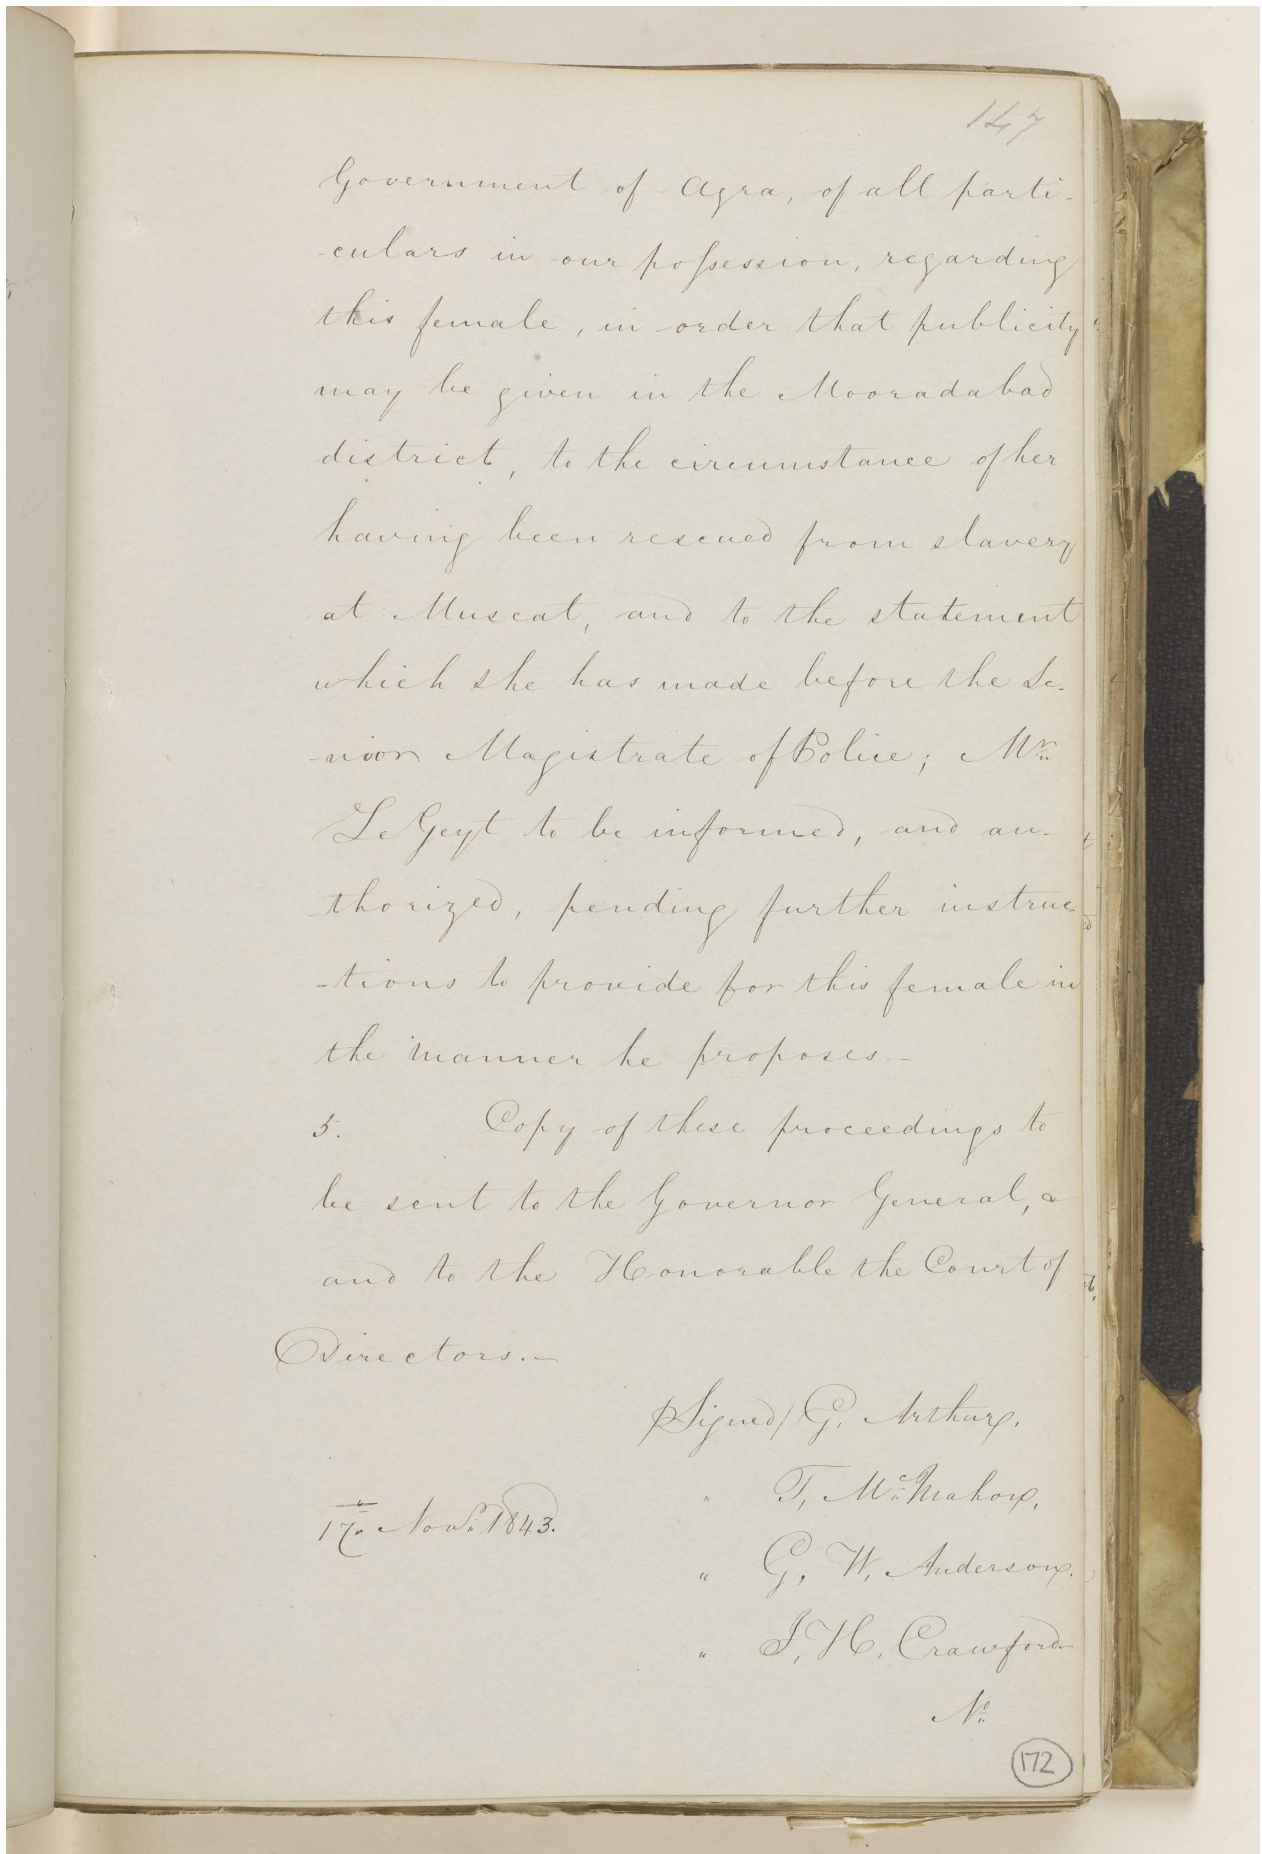 147
Government of Agra, of all parti-
-culars in our possession, regarding
this female, in order that publicity
may be given in the Mooradabad
district, to the circumstance of her
having been rescued from slavery
at Muscat, and to the statement
which she has made before the Se-
-nior Magistrate of Police; Mr
LeGeyt to be informed, and au-
-thorized, pending further instruc-
-tions to provide for this female in
the manner he proposes.-
5. Copy of these proceedings to
be sent to the Governor General, &
and to the Honorable the Court of
Directors.-
/Signed/ G. Arthur.
" T, McMahon,
17th Novr 1843.
" G, W, Anderson.
" J, H, Crawford
No
172